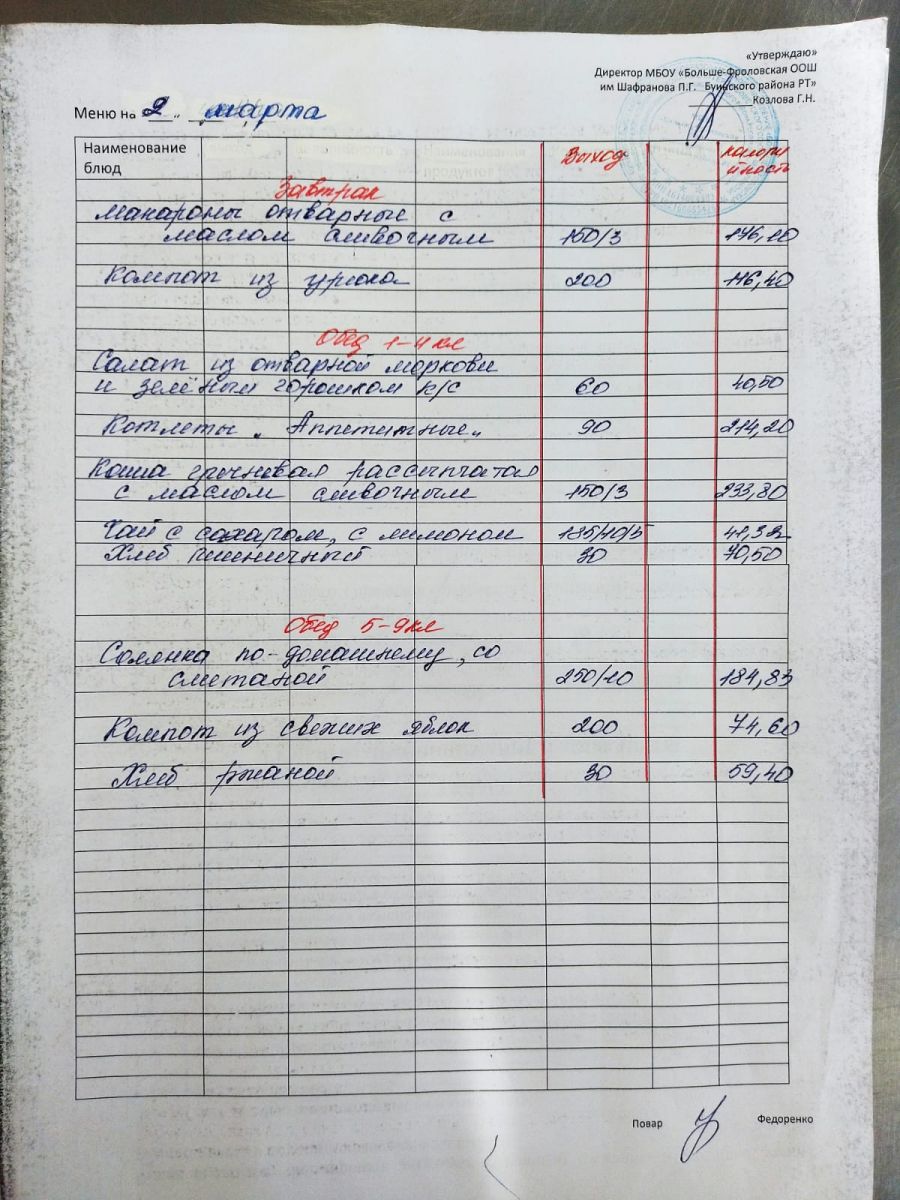 «Утверждаю»
Директор МБОУ «Больше-Фроловская ООШ
им Шафранова П.Г. Буинского района РТ»
Козлова Г.Н.
Меню на 2 марта
Наименование блюд Выход калорийность
Завтрак
Макароны отварные с
маслом сливочным 150/3 146,10
Компот из урюка 200 116,40
Обед 1-4 кл
Салат из отварной моркови
и зелёным горошком к/с 60 40,50
Котлеты „Аппетитные„ 90 214,20
Каша гречневая рассыпчатая
с маслом сливочным 150/3 233,80
Чай с сахаром, с лимоном 185/10/5 41,32
Хлеб пшеничный 30 70,50
Обед 5-9 кл
Солянка по-домашнему, со
сметаной 250/10 184,83
Компот из свежих яблок 200 74,60
Хлеб ржаной 30 59,40
Повар Федоренко